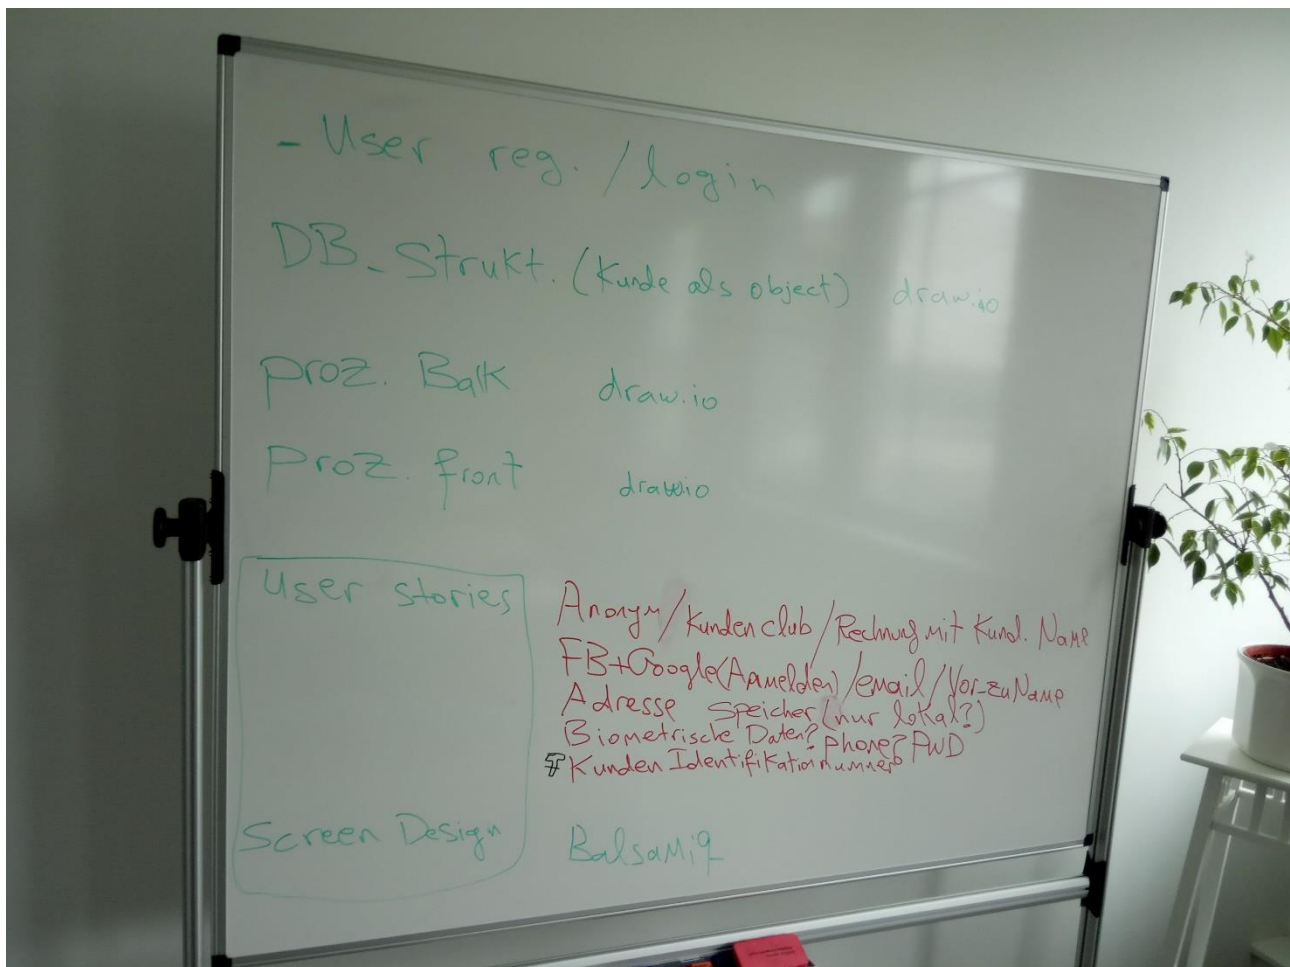 - User reg. / login
DB_Strukt. (Kunde als object) draw.io
proz. Back draw.io
Proz. front draw.io
User stories
Anonym / Kunden club / Rechnung mit Kund. Name
FB+Google (Anmelden) / email / Vor_zu Name
Adresse speicher (nur lokal?)
Biometrische Daten? Phone? PWD
Kunden Identifikationnummer
Screen Design Balsamiq